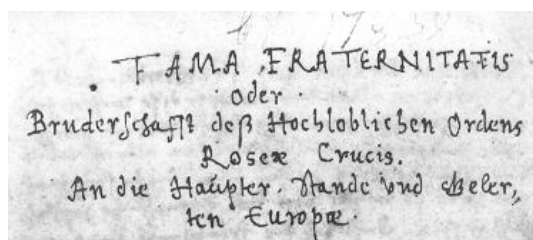 FAMA FRATERNITATIS
oder.
Bruderschafft deß Hochloblichen Ordens
Roseæ Crucis.
An die Haupter, Stande vnd Geler,,
ten Europæ.